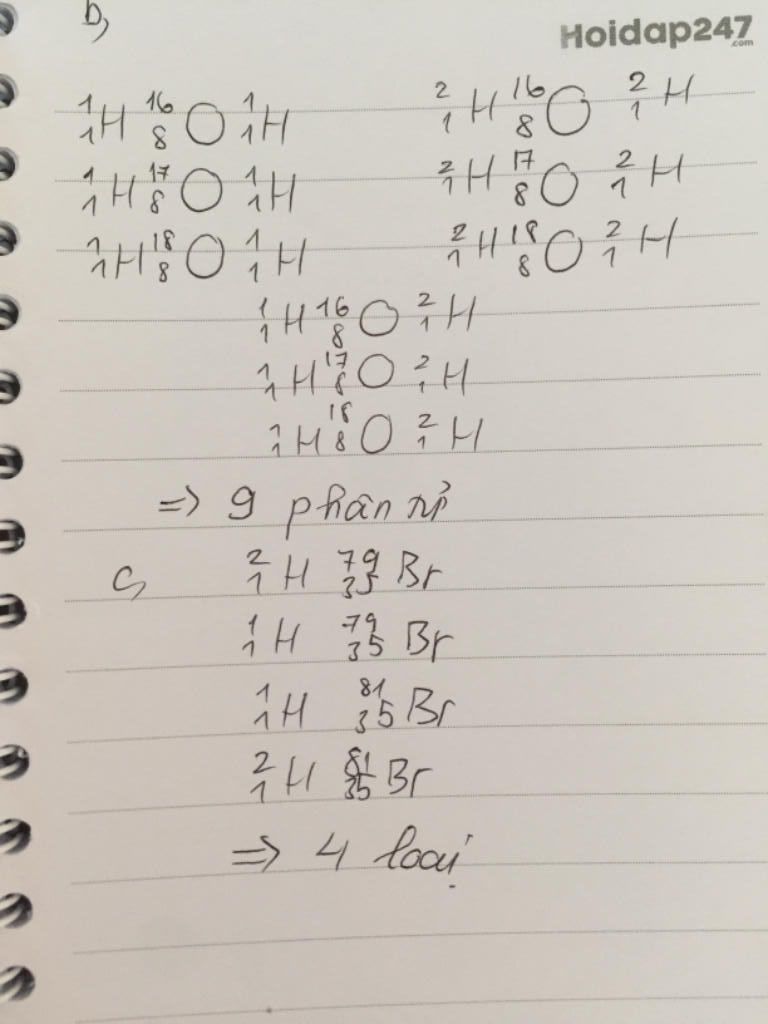 b,
Hoidap247
.com
¹₁H ¹⁶₈O ¹₁H ²₁H ¹⁶₈O ²₁H
¹₁H ¹⁷₈O ¹₁H ²₁H ¹⁷₈O ²₁H
¹₁H ¹⁸₈O ¹₁H ²₁H ¹⁸₈O ²₁H
¹₁H ¹⁶₈O ²₁H
¹₁H ¹⁷₈O ²₁H
¹₁H ¹⁸₈O ²₁H
=> 9 phân tử
c, ²₁H ⁷⁹₃₅Br
¹₁H ⁷⁹₃₅Br
¹₁H ⁸¹₃₅Br
²₁H ⁸¹₃₅Br
=> 4 loại